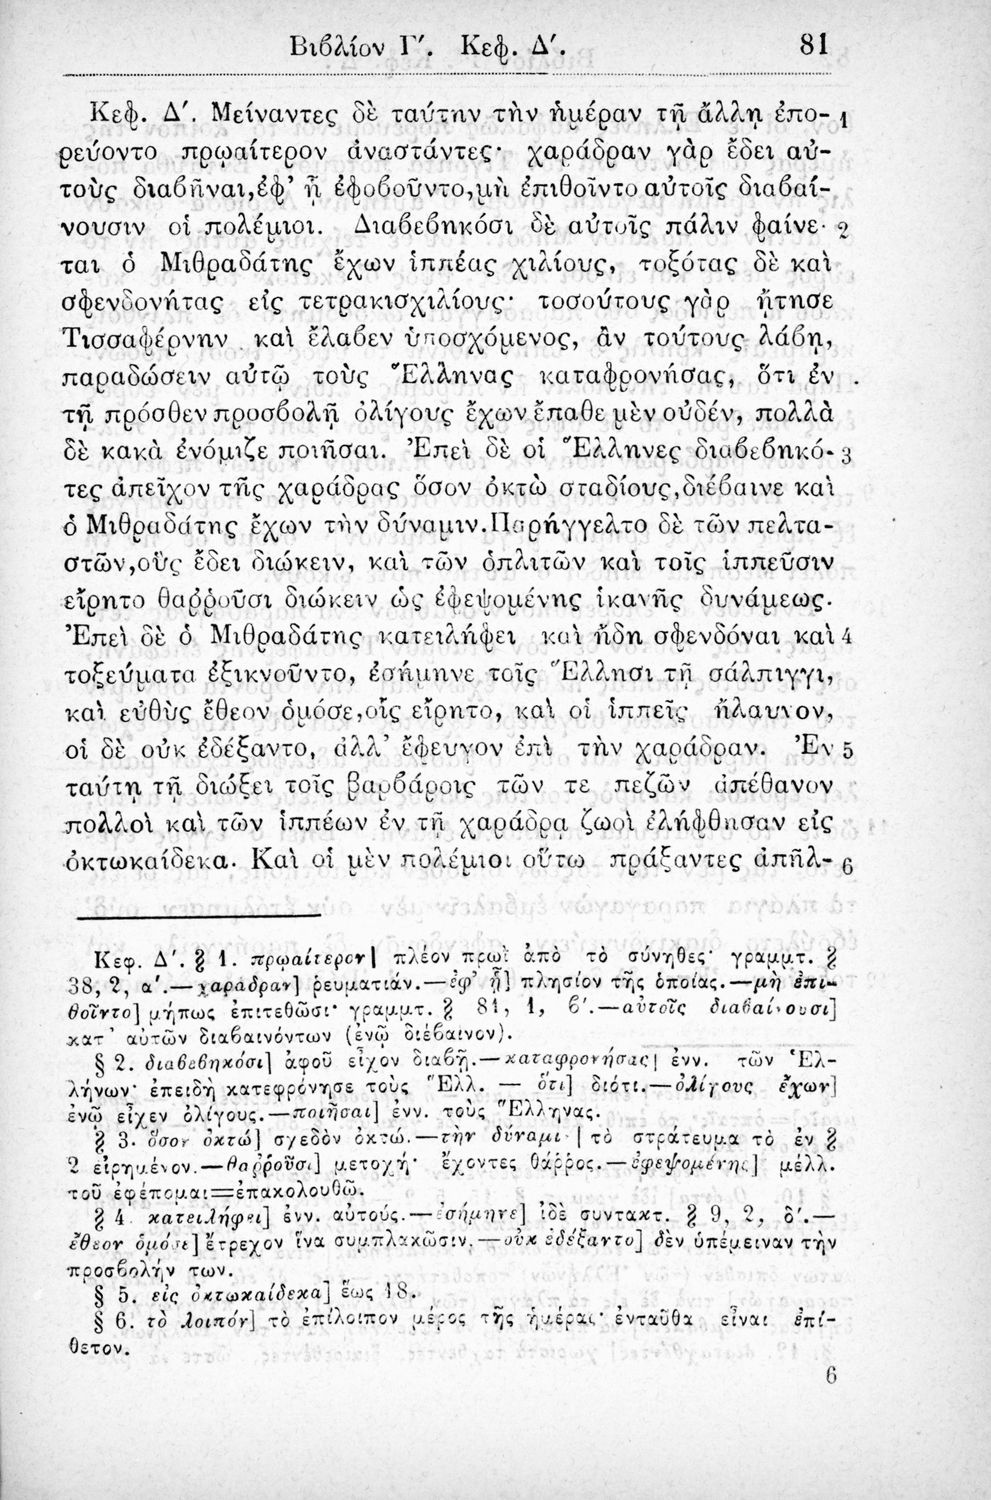 Βιβλίον Γ΄. Κεφ. Δ΄. 81
Κεφ. Δ΄. Μείναντες δὲ ταύτην τὴν ἡμέραν τῇ ἄλλῃ ἐπο- 1
ρεύοντο πρῳαίτερον ἀναστάντες· χαράδραν γὰρ ἔδει αὐ-
τοὺς διαβῆναι, ἐφ’ ᾗ ἐφοβοῦντο, μὴ ἐπιθοῖντο αὐτοῖς διαβαί-
νουσιν οἱ πολέμιοι. Διαβεβηκόσι δὲ αὐτοῖς πάλιν φαίνε- 2
ται ὁ Μιθραδάτης ἔχων ἱππέας χιλίους, τοξότας δὲ καὶ
σφενδονήτας εἰς τετρακισχιλίους· τοσούτους γὰρ ᾔτησε
Τισσαφέρνην καὶ ἔλαβεν ὑποσχόμενος, ἂν τούτους λάβῃ,
παραδώσειν αὐτῷ τοὺς Ἕλληνας καταφρονήσας, ὅτι ἐν
τῇ πρόσθεν προσβολῇ ὀλίγους ἔχων ἔπαθε μὲν οὐδέν, πολλὰ
δὲ κακὰ ἐνόμιζε ποιῆσαι. Ἐπεὶ δὲ οἱ Ἕλληνες διαβεβηκό- 3
τες ἀπεῖχον τῆς χαράδρας ὅσον ὀκτὼ σταδίους, διέβαινε καὶ
ὁ Μιθραδάτης ἔχων τὴν δύναμιν. Παρήγγελτο δὲ τῶν πελτα-
στῶν, οὓς ἔδει διώκειν, καὶ τῶν ὁπλιτῶν καὶ τοῖς ἱππεῦσιν
εἴρητο θαῤῥοῦσι διώκειν ὡς ἐφεψομένης ἱκανῆς δυνάμεως.
Ἐπεὶ δὲ ὁ Μιθραδάτης κατειλήφει καὶ ἤδη σφενδόναι καὶ 4
τοξεύματα ἐξικνοῦντο, ἐσήμηνε τοῖς Ἕλλησι τῇ σάλπιγγι,
καὶ εὐθὺς ἔθεον ὁμόσε, οἷς εἴρητο, καὶ οἱ ἱππεῖς ἤλαυνον,
οἱ δὲ οὐκ ἐδέξαντο, ἀλλ’ ἔφευγον ἐπὶ τὴν χαράδραν. Ἐν 5
ταύτῃ τῇ διώξει τοῖς βαρβάροις τῶν τε πεζῶν ἀπέθανον
πολλοὶ καὶ τῶν ἱππέων ἐν τῇ χαράδρᾳ ζωοὶ ἐλήφθησαν εἰς
ὀκτωκαίδεκα. Καὶ οἱ μὲν πολέμιοι οὕτω πράξαντες ἀπῆλ- 6
Κεφ. Δ΄. § 1. πρῳαίτερον] πλέον πρωῒ ἀπὸ τὸ σύνηθες· γραμμτ. §
38, 2, α΄.—χαράδραν] ῥευματιάν.—ἐφ’ ᾗ] πλησίον τῆς ὁποίας.—μὴ ἐπι-
θοῖντο] μήπως ἐπιτεθῶσι· γραμμτ. § 81, 1, β΄.—αὐτοῖς διαβαίνουσι]
κατ’ αὐτῶν διαβαινόντων (ἐνῷ διέβαινον).
§ 2. διαβεβηκόσι] ἀφοῦ εἶχον διαβῆ.—καταφρονήσας] ἐνν. τῶν Ἑλ-
λήνων· ἐπειδὴ κατεφρόνησε τοὺς Ἕλλ. — ὅτι] διότι.—ὀλίγους ἔχων]
ἐνῷ εἶχεν ὀλίγους.—ποιῆσαι] ἐνν. τοὺς Ἕλληνας.
§ 3. ὅσον ὀκτώ] σχεδὸν ὀκτώ.—τὴν δύναμιν] τὸ στράτευμα τὸ ἐν §
2 εἰρημένον.—θαῤῥοῦσι] μετοχή· ἔχοντες θάῤῥος.—ἐφεψομένης] μέλλ.
τοῦ ἐφέπομαι=ἐπακολουθῶ.
§ 4. κατειλήφει] ἐνν. αὐτούς.—ἐσήμηνε] ἰδὲ συντακτ. § 9, 2, δ΄.—
ἔθεον ὁμόσε] ἔτρεχον ἵνα συμπλακῶσιν.—οὐκ ἐδέξαντο] δὲν ὑπέμειναν τὴν
προσβολήν των.
§ 5. εἰς ὀκτωκαίδεκα] ἕως 18.
§ 6. τὸ λοιπόν] τὸ ἐπίλοιπον μέρος τῆς ἡμέρας· ἐνταῦθα εἶναι ἐπί-
θετον.
6